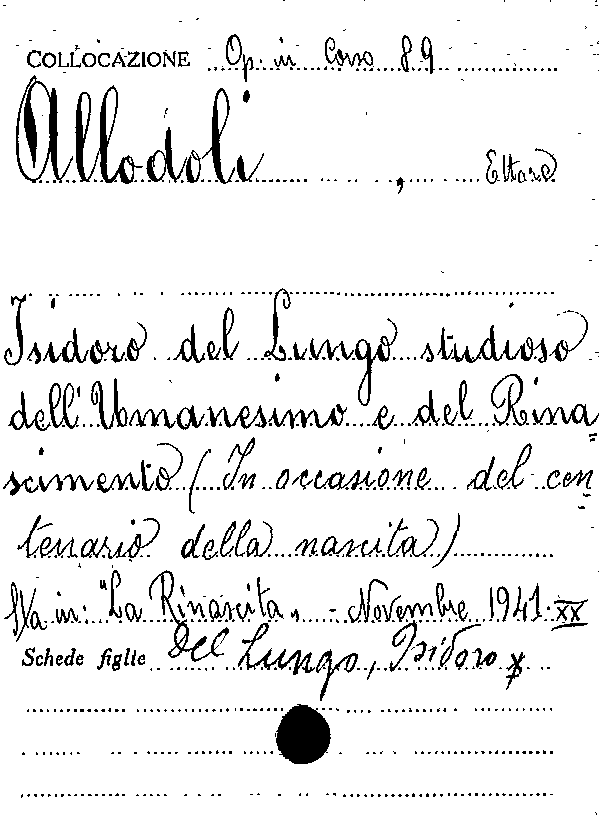 COLLOCAZIONE Op. in Corso 89
Allodoli , Ettore
Isidoro del Lungo studioso
dell'Umanesimo e del Rina=
scimento (In occasione del cen=
tenario della nascita)
in: "La Rinascita" - Novembre 1941. XX
Schede figlie Del Lungo, Isidoro